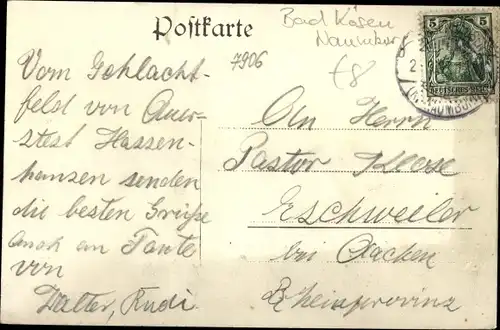 Postkarte
Bad Kösen
Naumburg
7906
5
DEUTSCHES REICH
(NAUMBURG
Vom Schlacht-
feld von Auer-
stest Hassen-
hausen senden
die besten Grüße
Auch an Tante
von
Walter, Rudi
An Herrn
Pastor Klose
Eschweiler
bei Aachen
Rheinprovinz